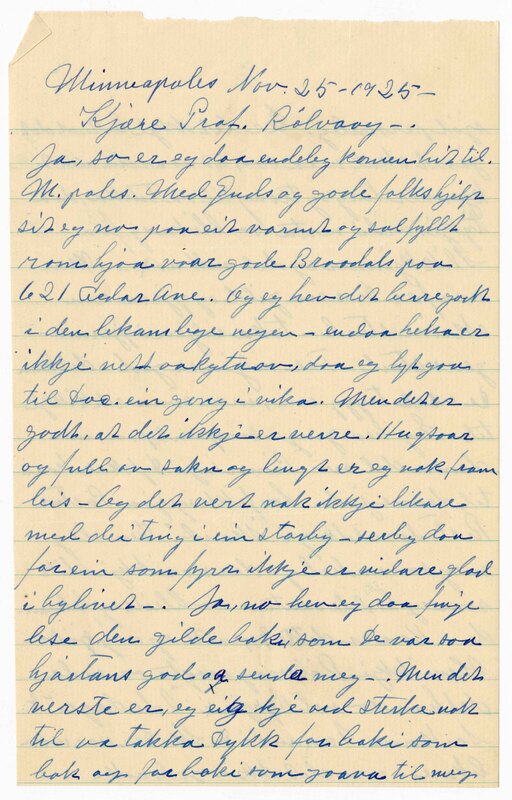 Minneapoles Nov. 25-1925-
Kjære Prof. Rölvaag-.
Ja, so er eg daa endeleg komen hit til
M.poles. Med Guds og gode folks hjelp
sit eg no paa eit varmt og solfyllt
rom hjaa vaar gode Braadals paa
621 Cedar Ave. Og eg hev det berre godt
i den likamlege vegen - endaa helsa er
ikkje nett aa kyta av, daa eg lyt gaa
til doc. ein gong i vika. Men det er
godt, at det ikkje er verre. Hugsaar
og full av sakn og lengt er eg nok fram
leis - Og det vert nok ikkje likare
med dei ting i ein storby - serleg daa
for ein som fyrr ikkje er vidare glad
i bylivet -. Ja, no hev eg daa finge
lese den gilde boki, som De var saa
hjartans god aa senda meg -. Men det
verste er, eg eig kje ord sterke nok
til aa takka Dykk for boki som
bok og for boki som gaava til meg